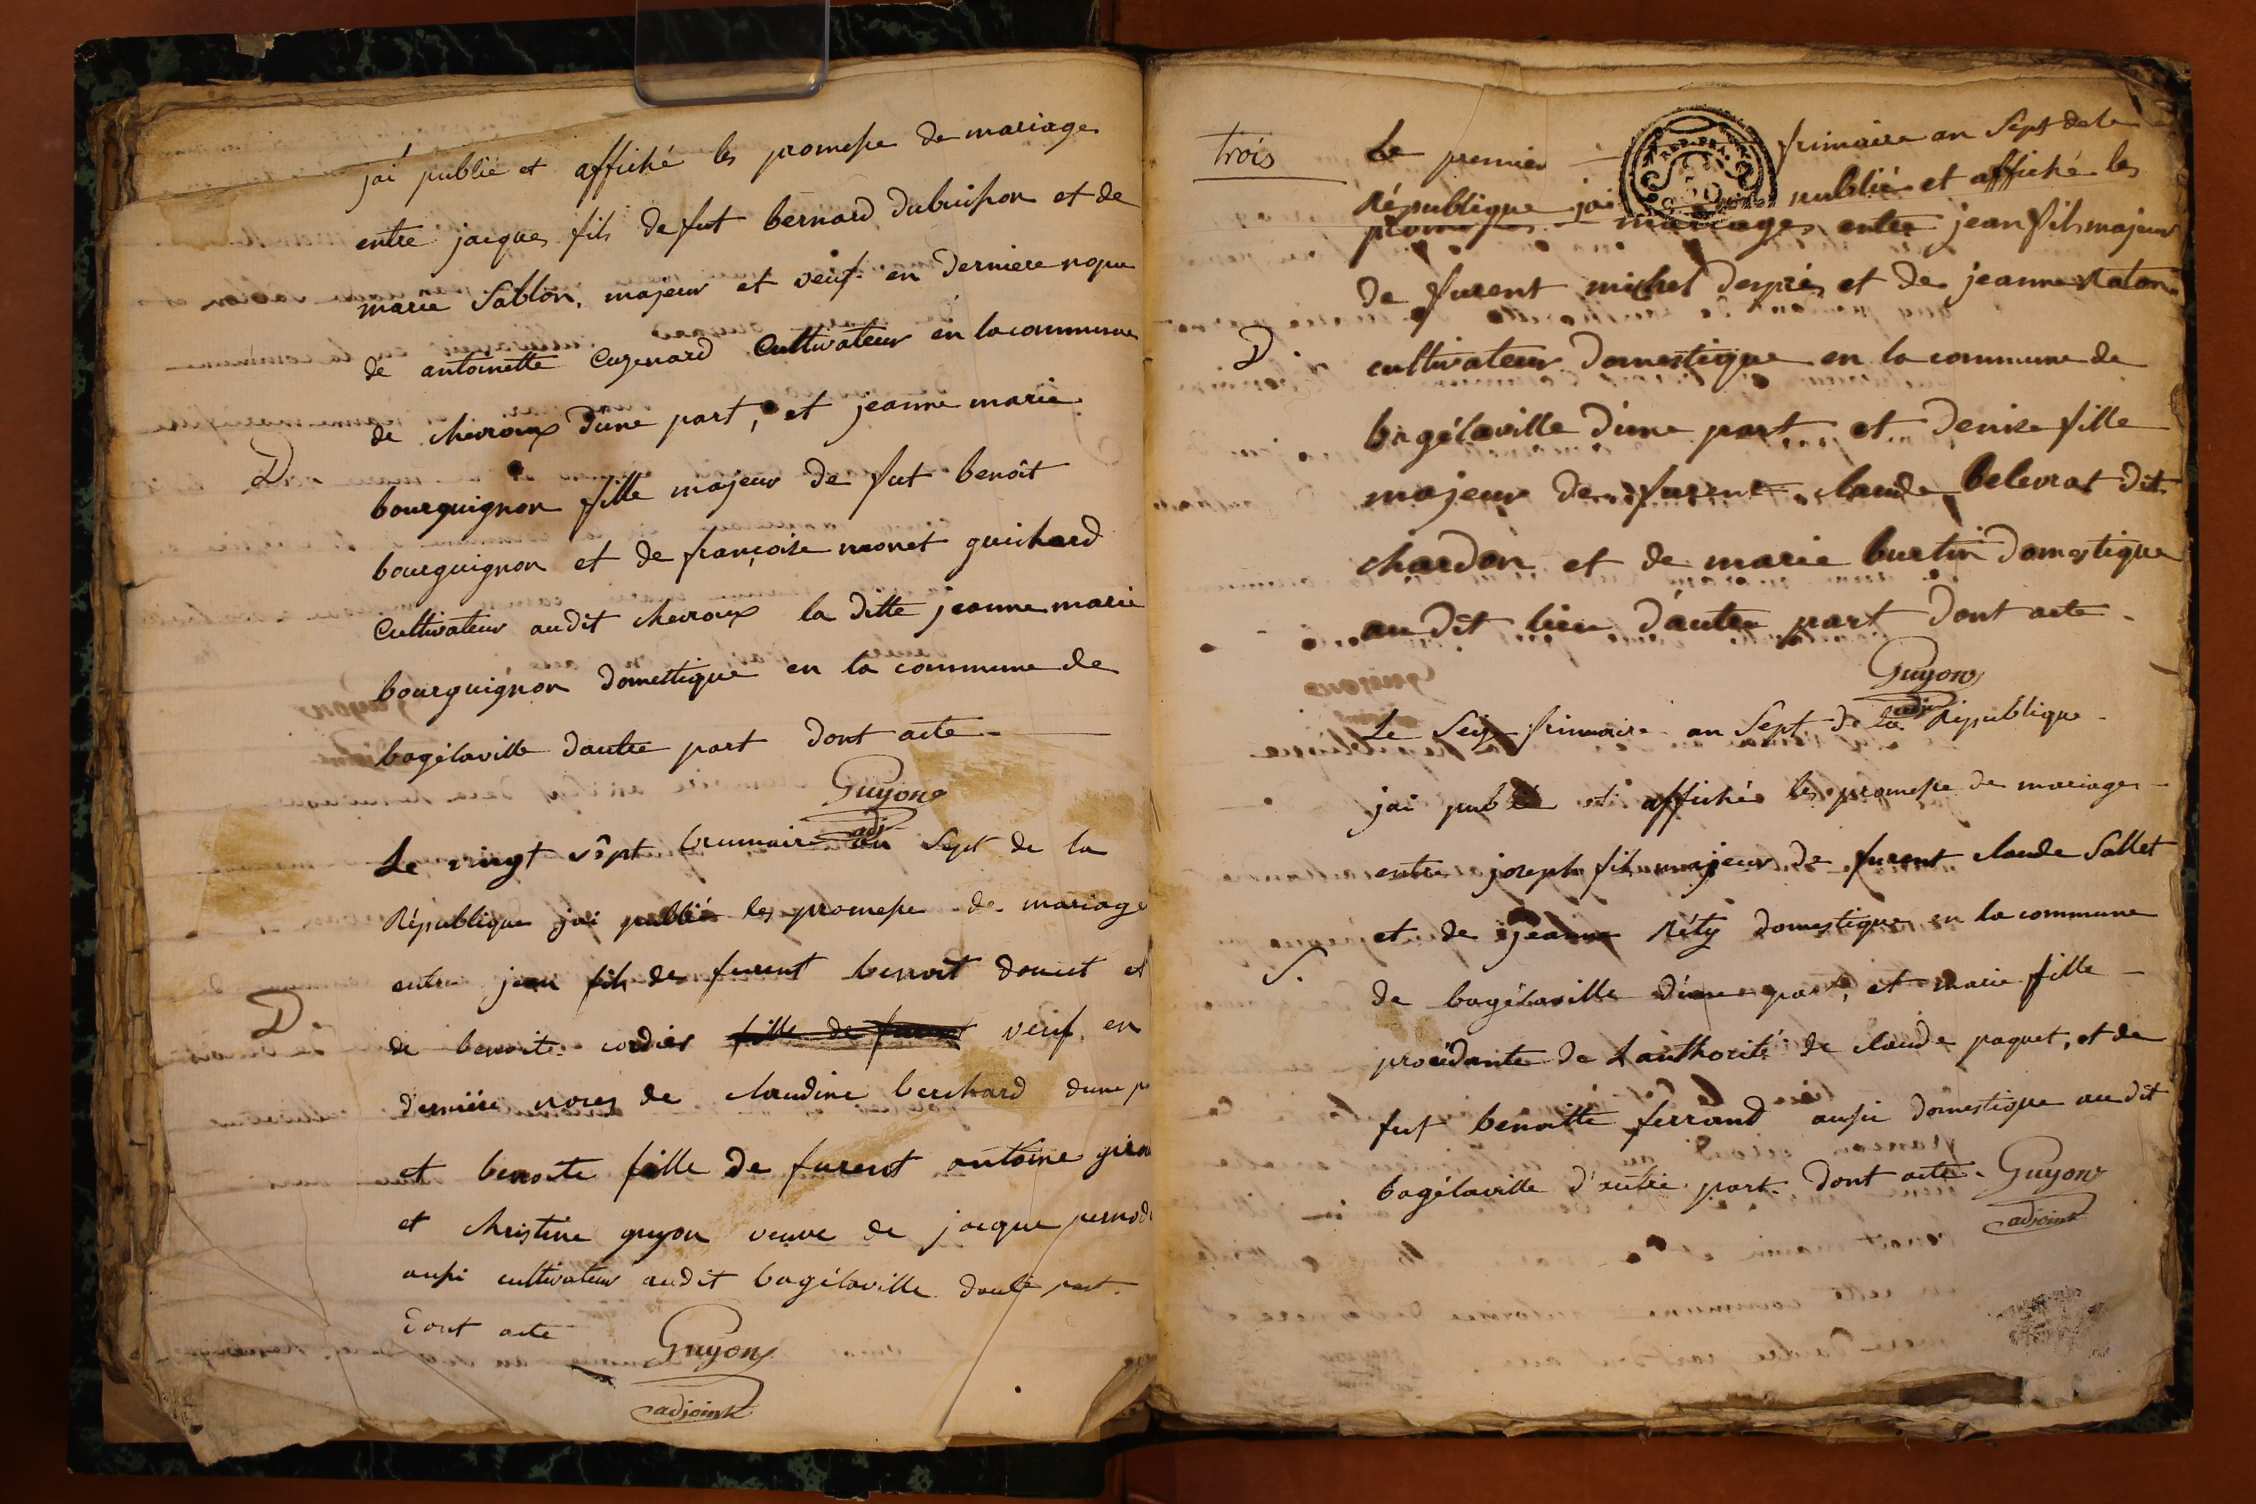 jai publié et affiché les promesse de mariage
entre jacques fils de fut bernard dubuisson et de
marie Sablon, majeur et veuf en derniere nopce
de antoinette Cugenard Cultivateur en la commune
de chevroux d'une part, et jeanne marie
D.
bourguignon fille majeur de fut benoît
bourguignon et de françoise monet guichard
Cultivateur audit chevroux la ditte jeanne marie
bourguignon domestique en la commune de
bagélaville dautre part dont acte
Guyon
adj
Le vingt sept brumaire an Sept de la
République jai publié les promesse de mariage
entre jean fils de furent benoit douret et
D.
de benoite cordier fille de furent veuf en
derniére noces de claudine berchard dune p
et benoite fille de furent antoine giro
et christine guyon veuve de jacque pernod
aussi cultivateur audit bagélaville dautre part.
Dont acte
Guyon
adjoint
trois
Le premier frimaire an Sept de la
REP. FRA.
République jai publié et affiché les
promesses mariages entre jean fils majeur
de furent michel Desprès et de jeanne Raton
D.
cultivateur Domestique en la commune de
bagélaville d'une part et Denise fille
majeur de furent claude belevrat dit
chardon et de marie burtin Domestique
au dit lieu d'autre part Dont acte
Guyon
adj
Le Seize frimaire an Sept de la République
jai publié et affiché les promesse de mariage
entre joseph fils majeur de furent claude Sallet
et de jeanne Réty domestique en la commune
S.
de bagélaville d'une part, et marie fille
procèdante de L'authorité de claude paquet, et de
fut benoitte ferrand aussi domestique audit
bagélaville d'autre part. Dont acte. Guyon
adjoint